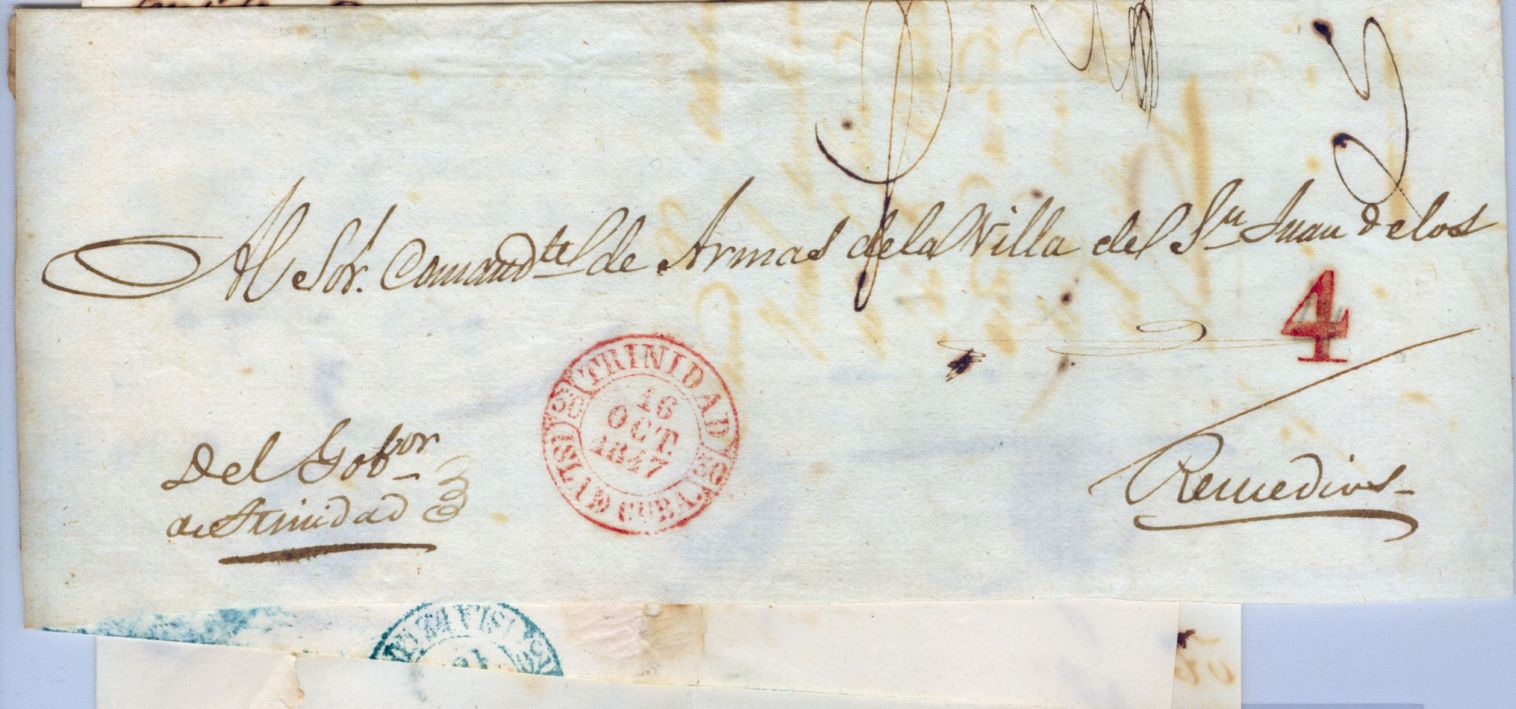 Al Sor. Comandte de Armas de la Villa de Sn Juan de los
4
Remedios
TRINIDAD
16
OCT.
1847
ISLA DE CUBA.
Del Gobor
de Trinidad
ISLA